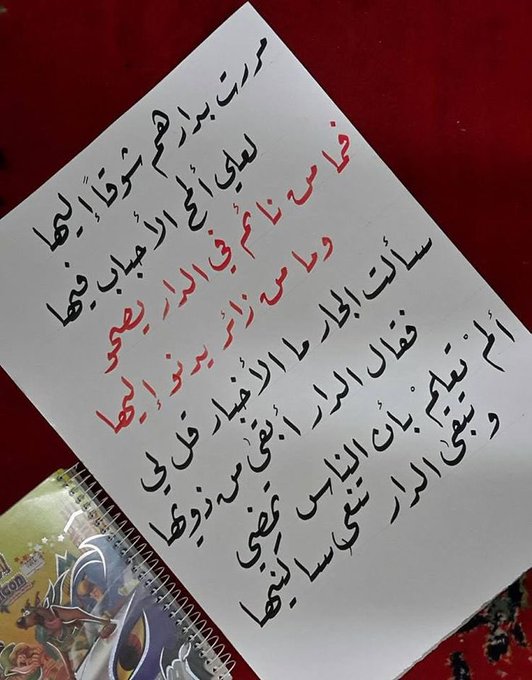 مررت بدارهم شوقاً إليها
لعلي ألمح الأحباب فيها
فما من نائم في الدار يصحو
وما من زائر يدنو إليها
سألت الجار ما الأخبار قل لي
فقال الدار أبقى من ذويها
ألم تعلم بأن الناس تمضي
وتبقى الدار تنعى ساكنيها